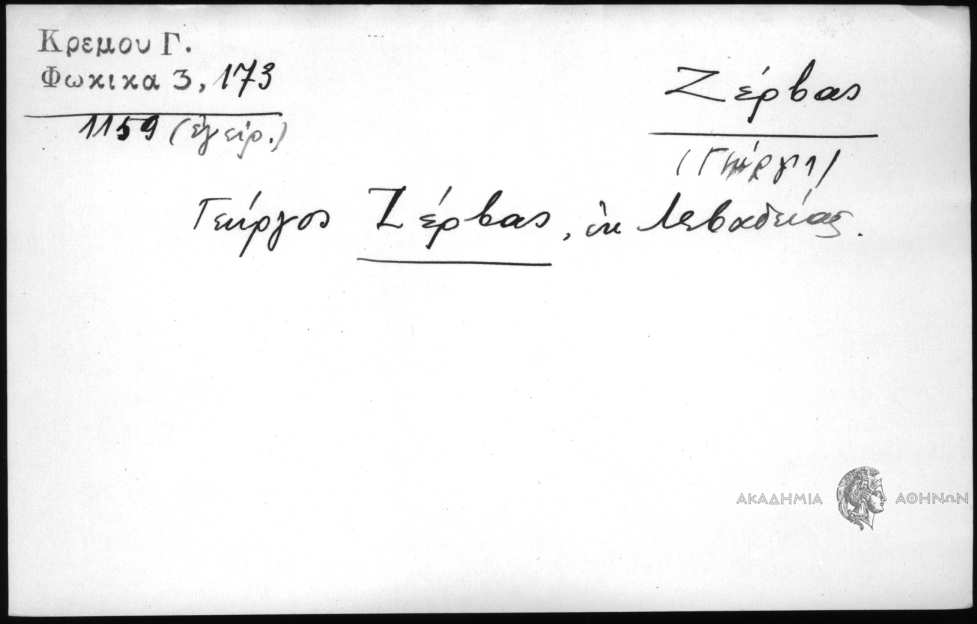 Κρεμου Γ.
Φωκικα 3, 173
1159 (ἐγείρ.)
Ζέρβας
Γεώργος Ζέρβας, ἐκ Λεβαδείας.
ΑΚΑΔΗΜΙΑ ΑΘΗΝΩΝ